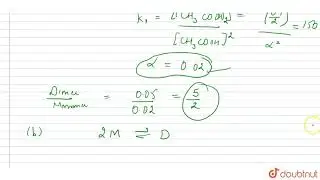 K₁ = [(CH₃COOH)₂] / [CH₃COOH]² = (0.1/2) / α² = 150
α = 0.02
Dimer / Monomer = 0.05 / 0.02 = 5 / 2
(b) 2M ⇌ D
doubtnut